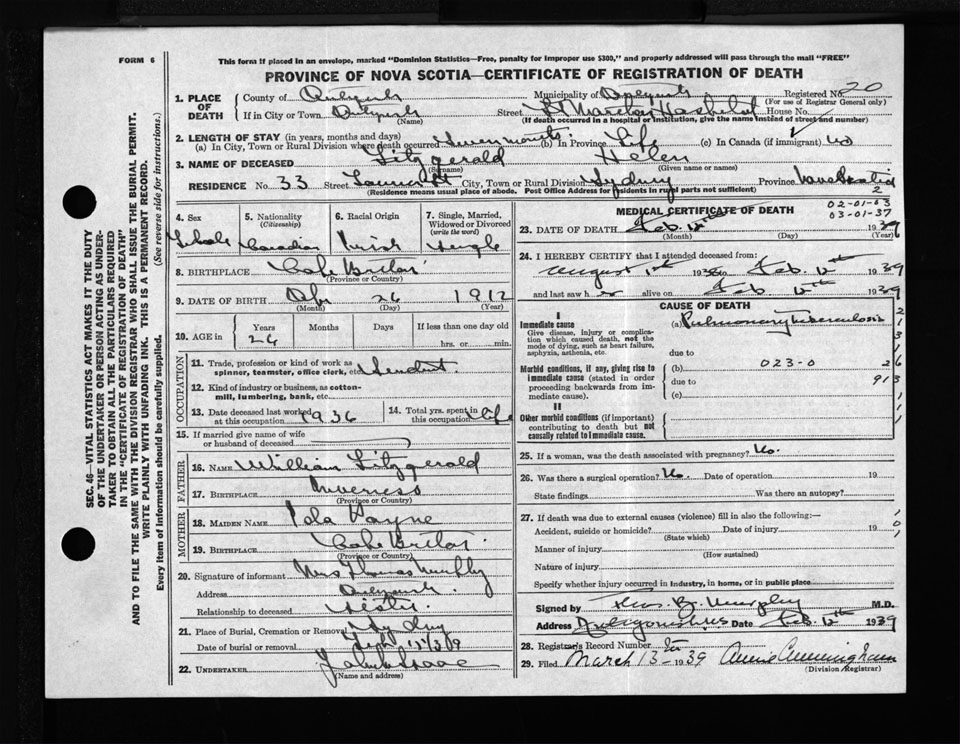 FORM 6
This form if placed in an envelope, marked "Dominion Statistics—Free, penalty for improper use $300," and properly addressed will pass through the mail "FREE"
PROVINCE OF NOVA SCOTIA—CERTIFICATE OF REGISTRATION OF DEATH
1. PLACE OF DEATH
County of
Municipality of
Registered No. 20
(For use of Registrar General only)
If in City or Town
(Name)
Street St Hospital House No.
(If death occurred in a hospital or institution, give the name instead of street and number)
2. LENGTH OF STAY (in years, months and days)
(a) In City, Town or Rural Division where death occurred months (b) In Province Life (c) In Canada (if immigrant) no
3. NAME OF DECEASED Fitzgerald Helen
(Surname) (Given name or names)
RESIDENCE No. 33 Street City, Town or Rural Division Sydney Province Nova Scotia
(Residence means usual place of abode. Post Office Address for residents in rural parts not sufficient) 2
4. Sex
5. Nationality (Citizenship) Canadian
6. Racial Origin Irish
7. Single, Married, Widowed or Divorced (write the word) Single
8. BIRTHPLACE Cape Breton
(Province or County)
9. DATE OF BIRTH 26 1912
(Month) (Day) (Year)
10. AGE in Years 26 Months Days If less than one day old
hrs. or min.
OCCUPATION
11. Trade, profession or kind of work as spinner, teamster, office clerk, etc. Student
12. Kind of industry or business, as cotton-mill, lumbering, bank, etc.
13. Date deceased last worked at this occupation 1936
14. Total yrs. spent in this occupation Life
15. If married give name of wife or husband of deceased
FATHER
16. NAME William Fitzgerald
17. BIRTHPLACE Inverness
(Province or Country)
MOTHER
18. MAIDEN NAME
19. BIRTHPLACE Cape Breton
(Province or Country)
20. Signature of informant Mrs Thomas Murphy
Address
Relationship to deceased Sister
21. Place of Burial, Cremation or Removal Sydney
Date of burial or removal
22. UNDERTAKER
(Name and address)
MEDICAL CERTIFICATE OF DEATH
02-01-03
03-01-37
23. DATE OF DEATH Feb. 12th 1939
(Month) (Day) (Year)
24. I HEREBY CERTIFY that I attended deceased from:
August 1st 1938 to Feb. 12th 1939
and last saw her alive on Feb 12th 1939
CAUSE OF DEATH
I
Immediate cause
Give disease, injury or complication which caused death, not the mode of dying, such as heart failure, asphyxia, asthenia, etc.
(a) Pulmonary tuberculosis
due to
Morbid conditions, if any, giving rise to immediate cause (stated in order proceeding backwards from immediate cause).
(b) 023-0
due to
(c)
II
Other morbid conditions (if important) contributing to death but not causally related to immediate cause.
25. If a woman, was the death associated with pregnancy? No.
26. Was there a surgical operation? No Date of operation 19
State findings Was there an autopsy?
27. If death was due to external causes (violence) fill in also the following:—
Accident, suicide or homicide? Date of injury 19
(State which)
Manner of injury
(How sustained)
Nature of injury
Specify whether injury occurred in industry, in home, or in public place
Signed by Murphy M.D.
Address Date Feb. 12th 1939
28. Registrar's Record Number
29. Filed March 13 1939 Annie Cunningham
(Division Registrar)
SEC. 46—VITAL STATISTICS ACT MAKES IT THE DUTY OF THE UNDERTAKER OR PERSON ACTING AS UNDERTAKER TO OBTAIN ALL THE PARTICULARS REQUIRED IN THE "CERTIFICATE OF REGISTRATION OF DEATH" AND TO FILE THE SAME WITH THE DIVISION REGISTRAR WHO SHALL ISSUE THE BURIAL PERMIT.
WRITE PLAINLY WITH UNFADING INK. THIS IS A PERMANENT RECORD.
Every item of information should be carefully supplied. (See reverse side for instructions.)